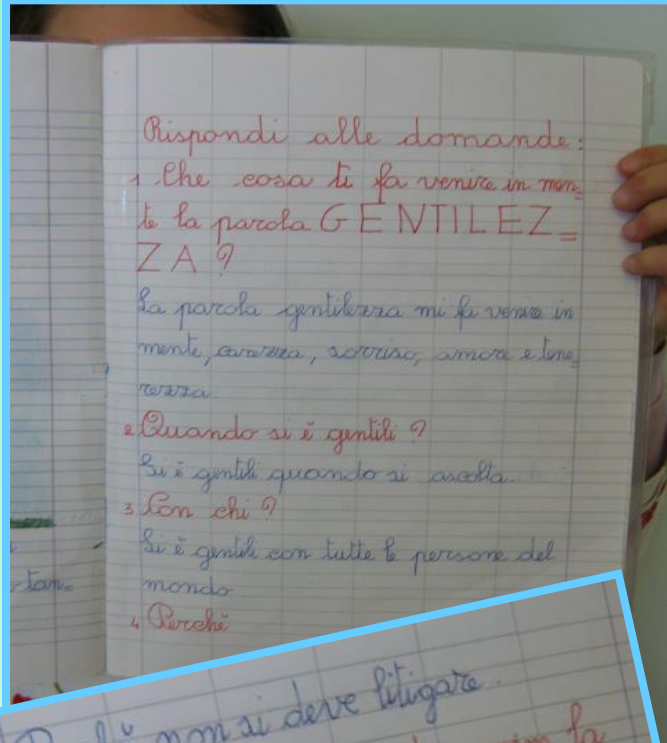 Rispondi alle domande:
1 Che cosa ti fa venire in men=
te la parola GENTILEZ=
ZA?
La parola gentilezza mi fa venire in
mente, carezza, sorriso, amore e tene=
rezza.
2 Quando si è gentili?
Si è gentili quando si ascolta.
3 Con chi?
Si è gentili con tutte le persone del
mondo.
4 Perchè
tan=
non si deve litigare.
la